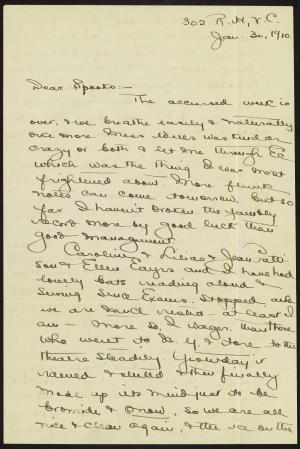 302 R. H., V. C.
Jan. 30, 1910.
Dear Spooks:-
The accursed week is
over, & we breathe easily & naturally
once more. Miss Wells was kind or
crazy or both & let me through Ec
which was the thing I was most
frightened about. More flunk
notes can come tomorrow, but so
far I haven't broken the family
record more by good luck than
good management.
Caroline & Lilias & Jean Patti
son & Ellen Eayrs and I have had
lovely bats reading aloud &
sewing since Exams. stopped, and
we are much rested - at least I
am - more so, I wager, than those
who went to N.Y. & tore to the
theatre steadily. Yesterday it
rained & & then finally
made up its mind just to be
bromide & snow, so we are all
nice & clean again, & the ice on the